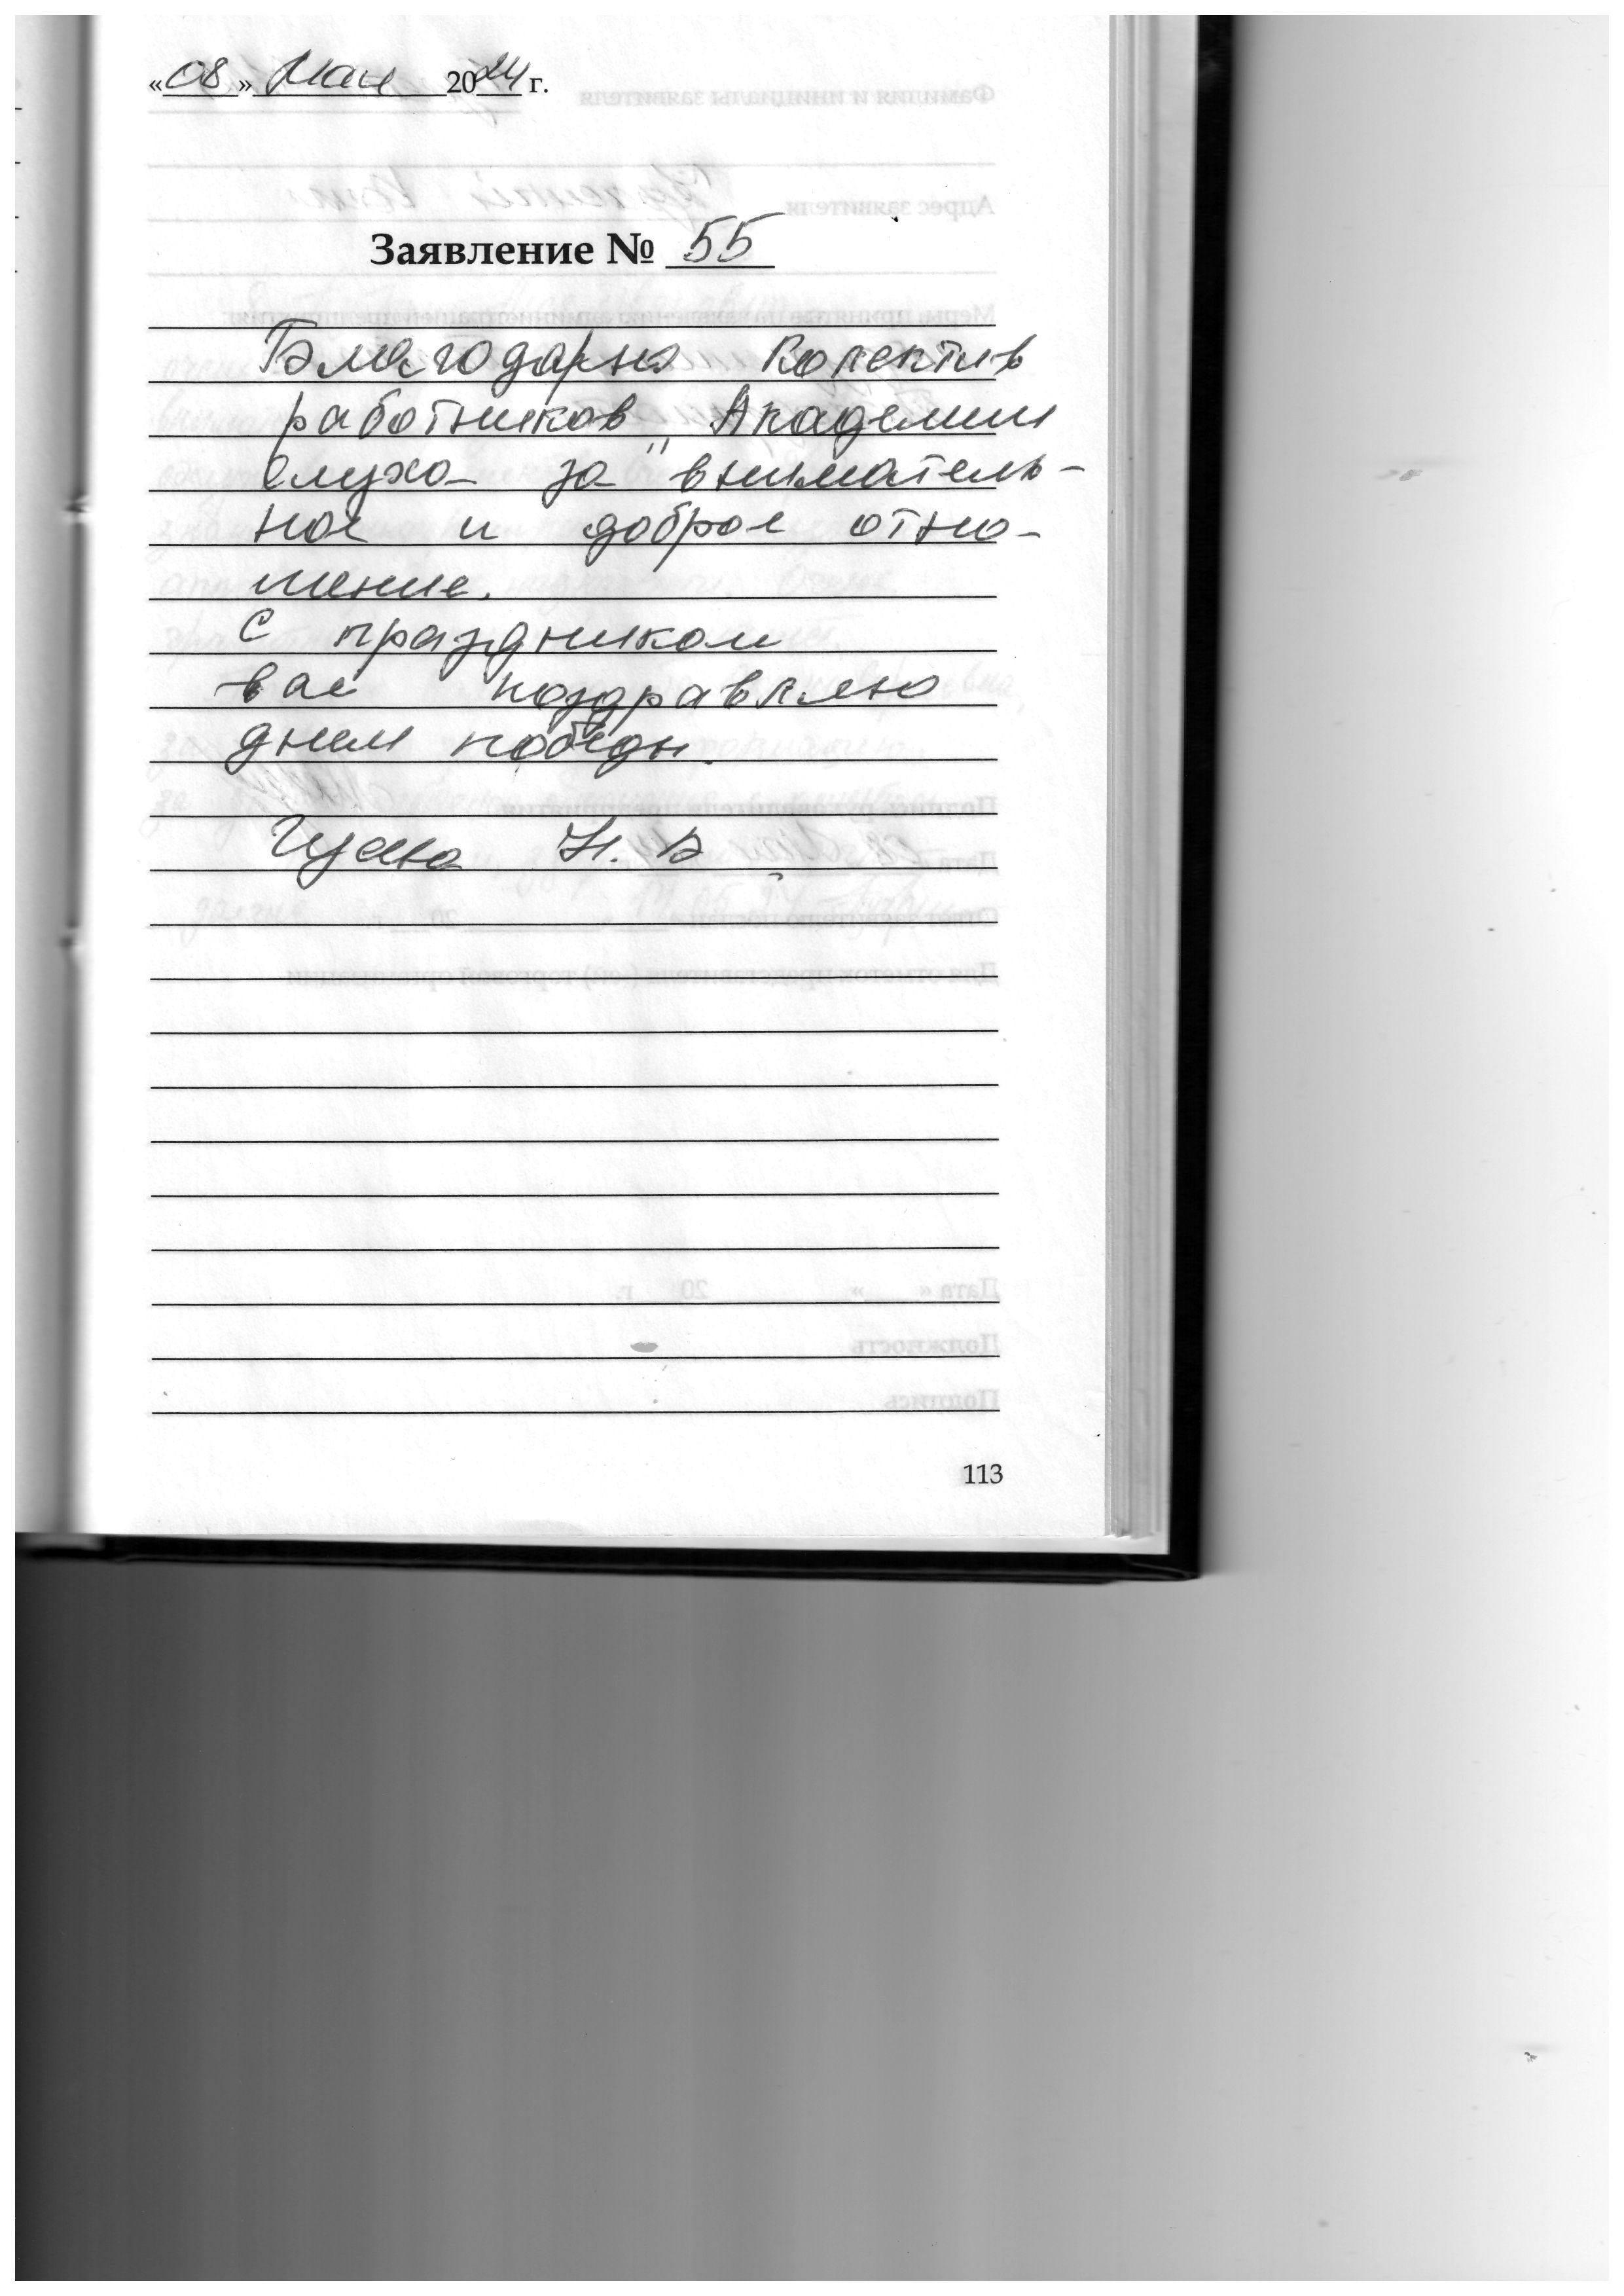 «08» Мая 2024 г.
Заявление № 55
Благодарю колектив
работников "Академии
слуха" за вниматель-
ное и доброе отно-
шение.
С праздником
вас поздравляю
днем победы.
Н. В
113